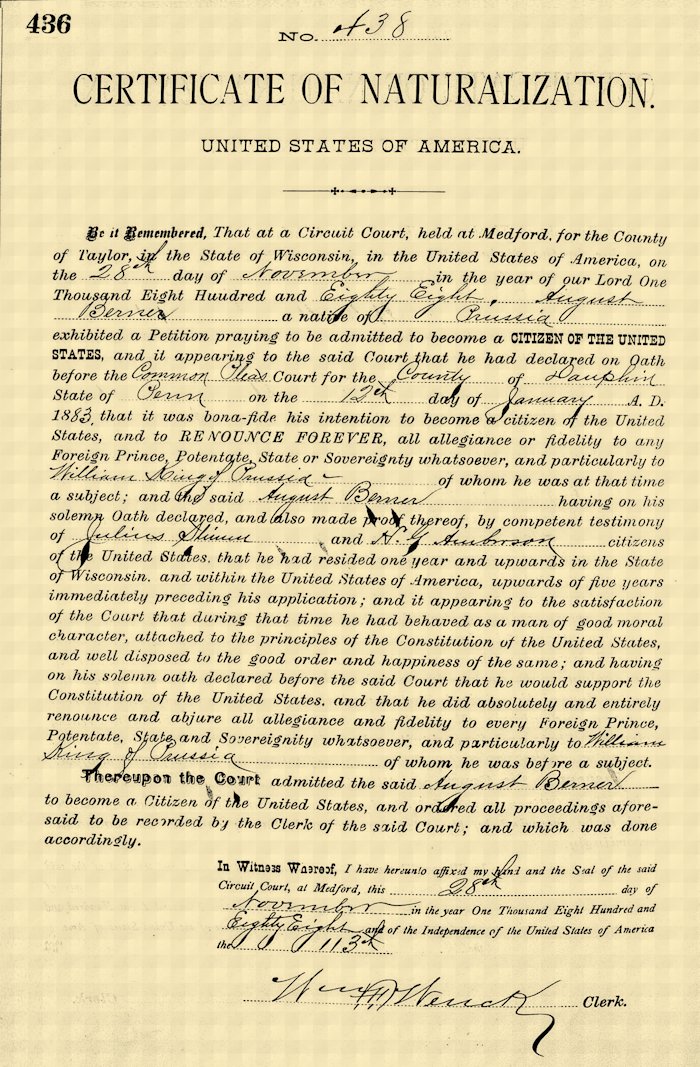 436
No. 438
CERTIFICATE OF NATURALIZATION.
UNITED STATES OF AMERICA.
Be it Remembered, That at a Circuit Court, held at Medford, for the County
of Taylor, in the State of Wisconsin, in the United States of America, on
the 28th day of November in the year of our Lord One
Thousand Eight Huudred and Eighty Eight. August
Berner a native of Prussia
exhibited a Petition praying to be admitted to become a CITIZEN OF THE UNITED
STATES, and it appearing to the said Court that he had declared on Oath
before the Common Pleas Court for the County of Dauphin
State of Penn on the 12th day of January A. D.
1883, that it was bona-fide his intention to become a citizen of the United
States, and to RENOUNCE FOREVER, all allegiance or fidelity to any
Foreign Prince, Potentate, State or Sovereignty whatsoever, and particularly to
William King of Prussia of whom he was at that time
a subject; and the said August Berner having on his
solemn Oath declared, and also made proof thereof, by competent testimony
of Julius and H. G. citizens
of the United States, that he had resided one year and upwards in the State
of Wisconsin. and within the United States of America, upwards of five years
immediately preceding his application; and it appearing to the satisfaction
of the Court that during that time he had behaved as a man of good moral
character, attached to the principles of the Constitution of the United States,
and well disposed to the good order and happiness of the same; and having
on his solemn oath declared before the said Court that he would support the
Constitution of the United States. and that he did absolutely and entirely
renounce and abjure all allegiance and fidelity to every Foreign Prince,
Potentate, State and Sovereignity whatsoever, and particularly to William
King of Prussia of whom he was before a subject.
Thereupon the Court admitted the said August Berner
to become a Citizen of the United States, and ordered all proceedings afore-
said to be recorded by the Clerk of the said Court; and which was done
accordingly.
In Witness Whereof, I have hereunto affixed my hand and the Seal of the said
Circuit Court, at Medford, this 28th day of
November in the year One Thousand Eight Hundred and
Eighty Eight and of the Independence of the United States of America
the 113th
Wenck Clerk.